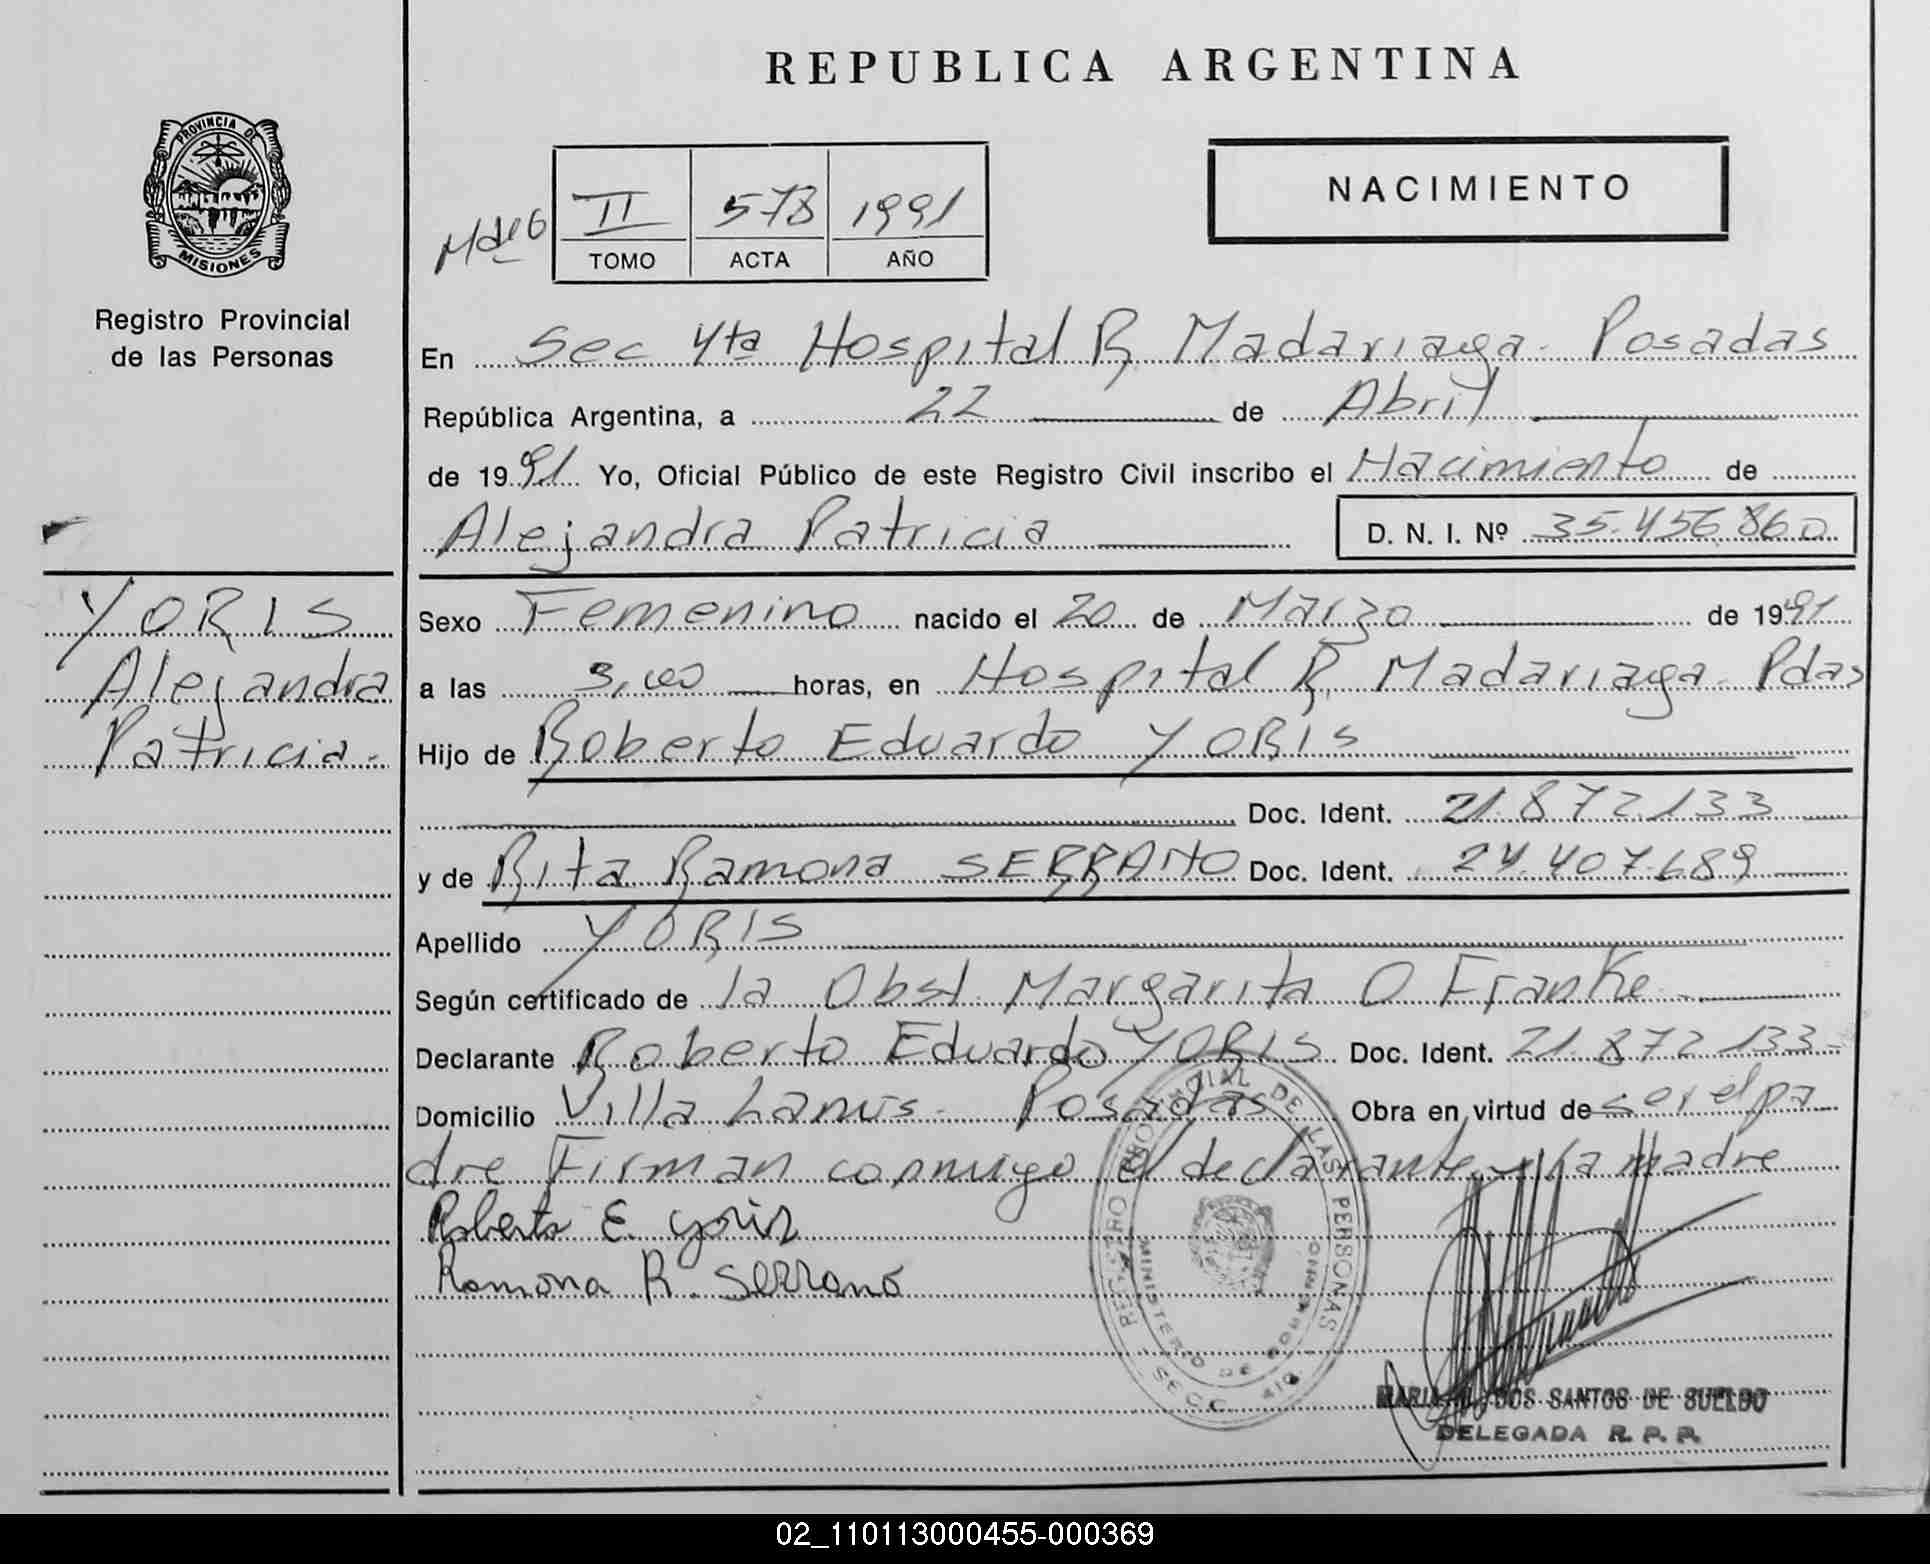 REPUBLICA ARGENTINA
PROVINCIA DE
MISIONES
Registro Provincial
de las Personas
NACIMIENTO
II 578 1991
TOMO ACTA AÑO
En Sec 4ta Hospital R Madariaga - Posadas
República Argentina, a 22 de Abril
de 1991 Yo, Oficial Público de este Registro Civil inscribo el Nacimiento de
Alejandra Patricia
D. N. I. Nº 35.456.860
YORIS
Alejandra
Patricia.
Sexo Femenino nacido el 20 de Marzo de 1991
a las 3,00 horas, en Hospital R. Madariaga - Pdas
Hijo de Roberto Eduardo YORIS
Doc. Ident. 21.872.133
y de Rita Ramona SERRANO Doc. Ident. 24.407.689
Apellido YORIS
Según certificado de la Obst. Margarita O Franke
Declarante Roberto Eduardo YORIS Doc. Ident. 21.872.133
Domicilio Villa Lanus - Posadas Obra en virtud de ser el pa
dre Firman conmigo el declarante y la madre
Roberto E. Yoris
Ramona R. Serrano
REGISTRO PROVINCIAL DE LAS PERSONAS
MINISTERIO DE GOBIERNO
SECC. 4ta
DOS SANTOS DE SUELDO
DELEGADA R. P. P.
02_110113000455-000369